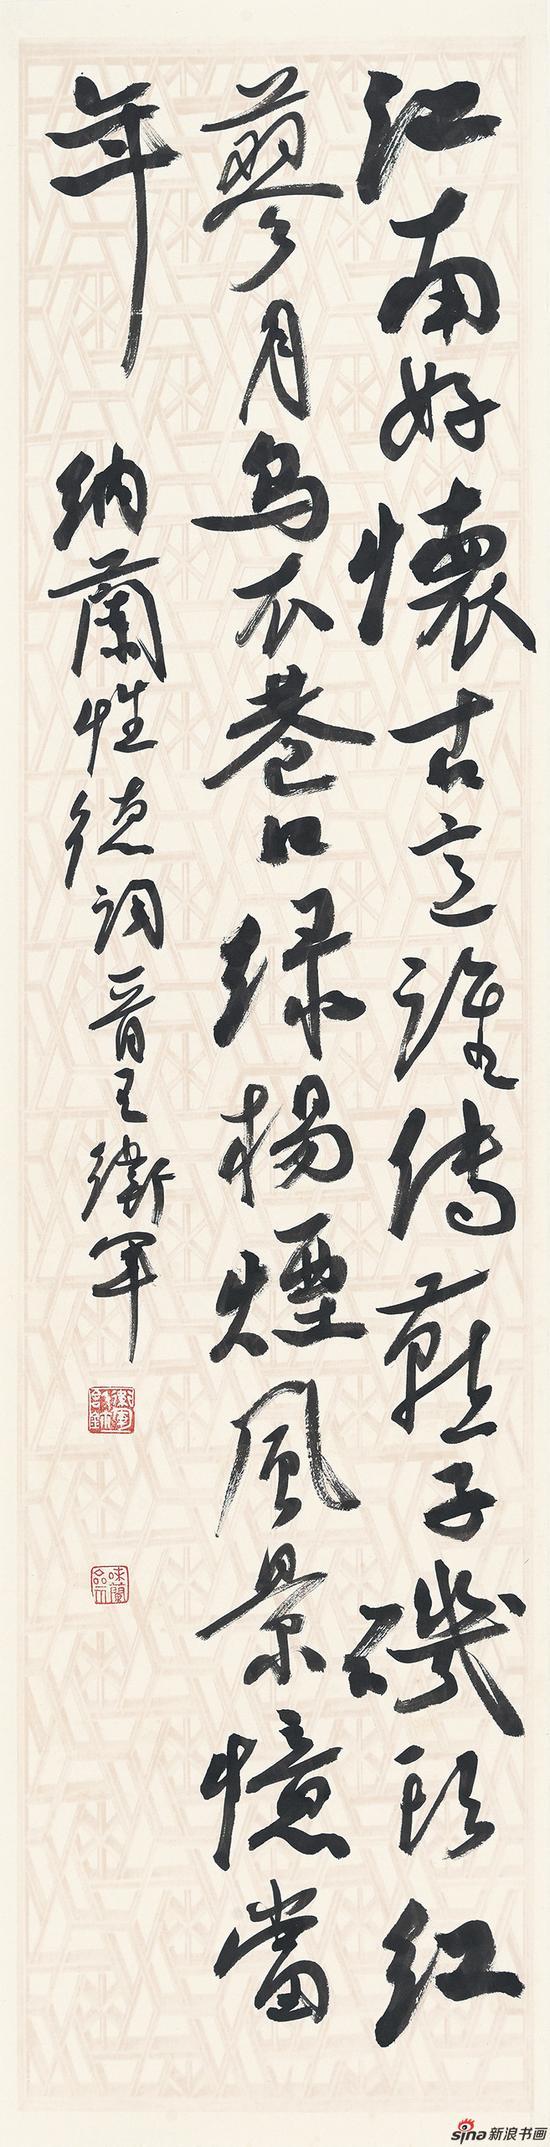 江南好懷古意誰傳燕子磯頭紅
蓼月烏衣巷口綠楊煙風景憶當
年
納蘭性德詞晉王衛軍
sina新浪书画